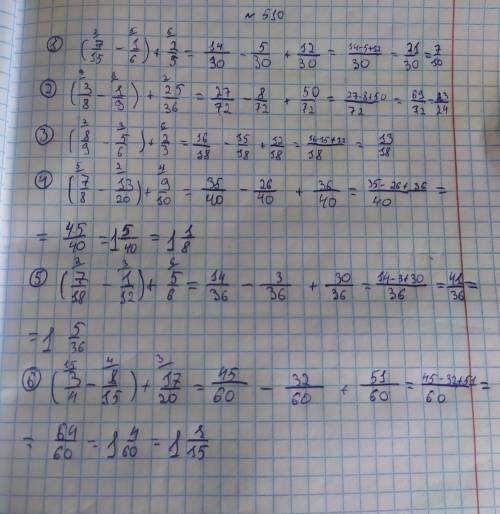 № 510
1) (7/15 - 1/6) + 2/5 = 14/30 - 5/30 + 12/30 = 14-5+12/30 = 21/30 = 7/10
2) (3/8 - 1/9) + 25/36 = 27/72 - 8/72 + 50/72 = 27-8+50/72 = 69/72 = 23/24
3) (8/9 - 5/6) + 2/3 = 16/18 - 15/18 + 12/18 = 16-15+12/18 = 13/18
4) (7/8 - 13/20) + 9/10 = 35/40 - 26/40 + 36/40 = 35-26+36/40 =
= 45/40 = 1 5/40 = 1 1/8
5) (7/18 - 1/12) + 5/6 = 14/36 - 3/36 + 30/36 = 14-3+30/36 = 41/36 =
= 1 5/36
6) (3/4 - 8/15) + 17/20 = 45/60 - 32/60 + 51/60 = 45-32+51/60 =
= 64/60 = 1 4/60 = 1 1/15